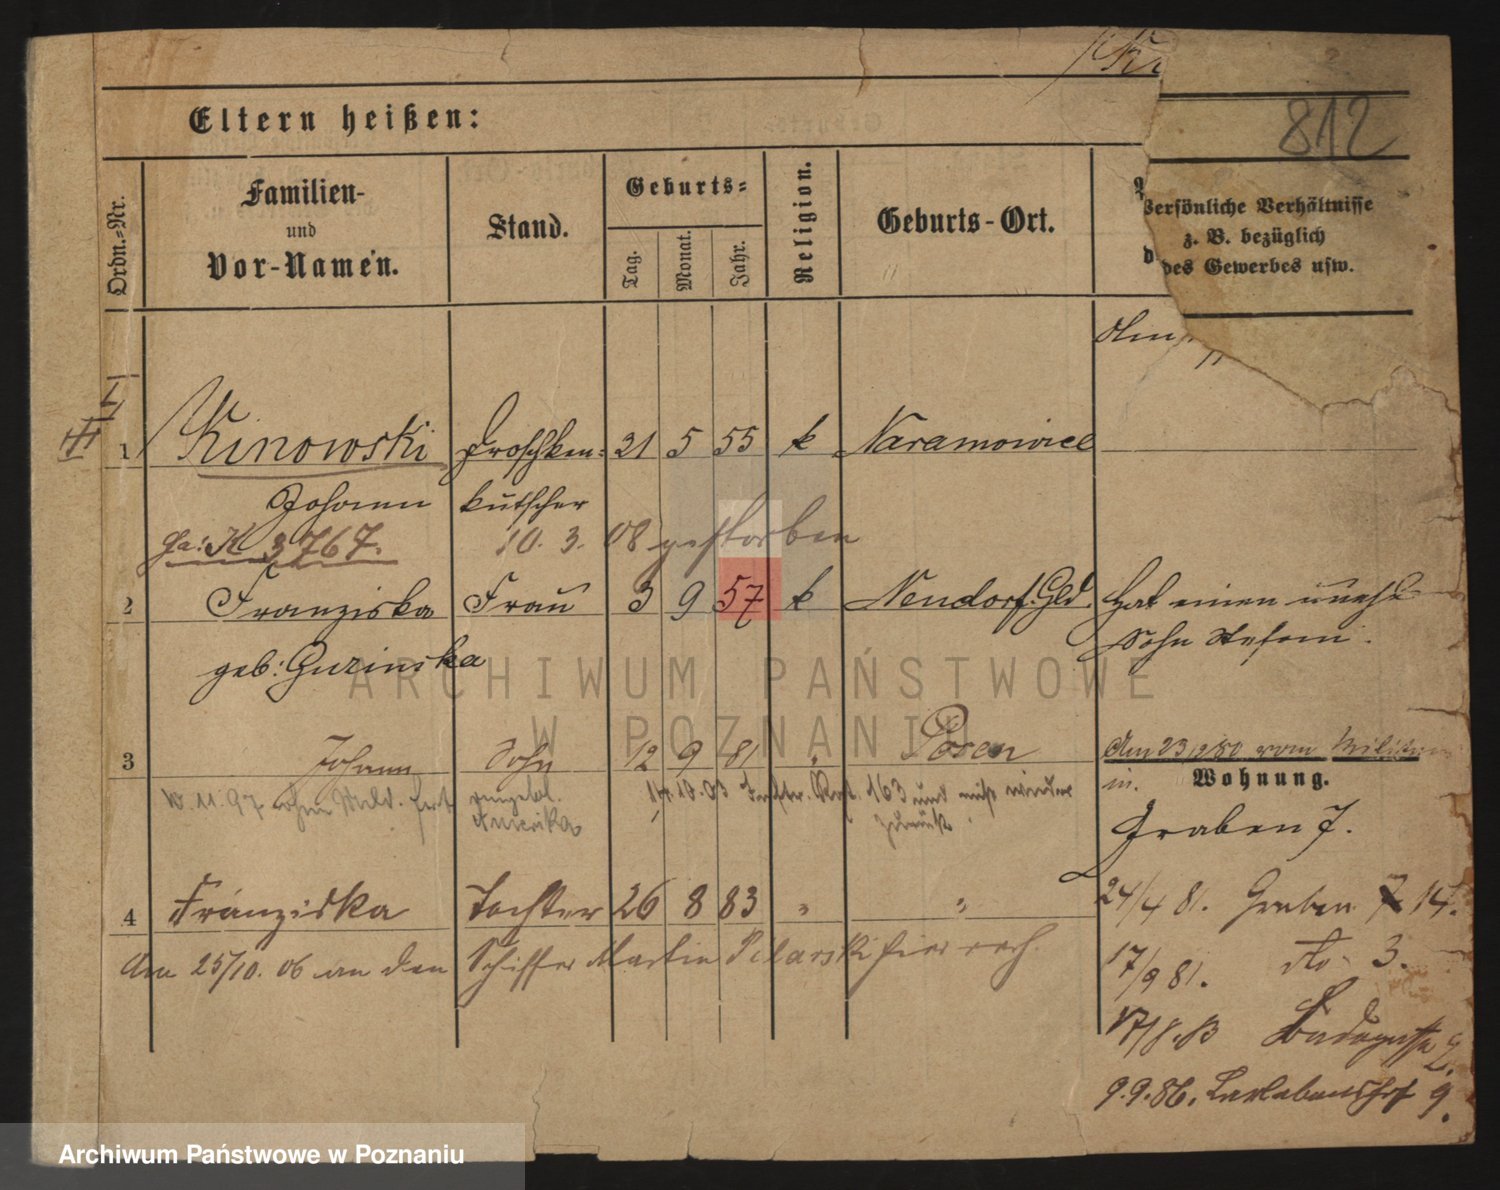 812
Eltern heißen:
Ordn.-Nr.
Familien-
und
Vor-Namen.
Stand.
Geburts-
Tag.
Monat.
Jahr.
Religion.
Geburts-Ort.
Persönliche Verhältnisse
z. B. bezüglich
des Gewerbes usw.
1 Kinowski Droschken- 21 5 55 k Naramowice
Johann kutscher
K 3767. 10. 3. 08 gestorben
2 Franziska Frau 3 9 57 k Nendorf Gld. Hat einen unehl.
geb: Guzinska Sohn Stefan.
3 Johann Sohn 12 9 81 " Posen Am 23/12 80 vom
Wohnung.
W. 11. 97 ohne 14.10.03 163 und nicht wieder
Amerika zurück
Graben 7.
4 Franziska Tochter 26 8 83 " " 24/4 81. Graben 7 14.
Am 25/10. 06 an den Schiffer Martin Pilarski 17/9 81. do 3.
17/8. 83 Badegasse 2.
9.9.86. 9.
ARCHIWUM PAŃSTWOWE
W POZNANIU
Archiwum Państwowe w Poznaniu